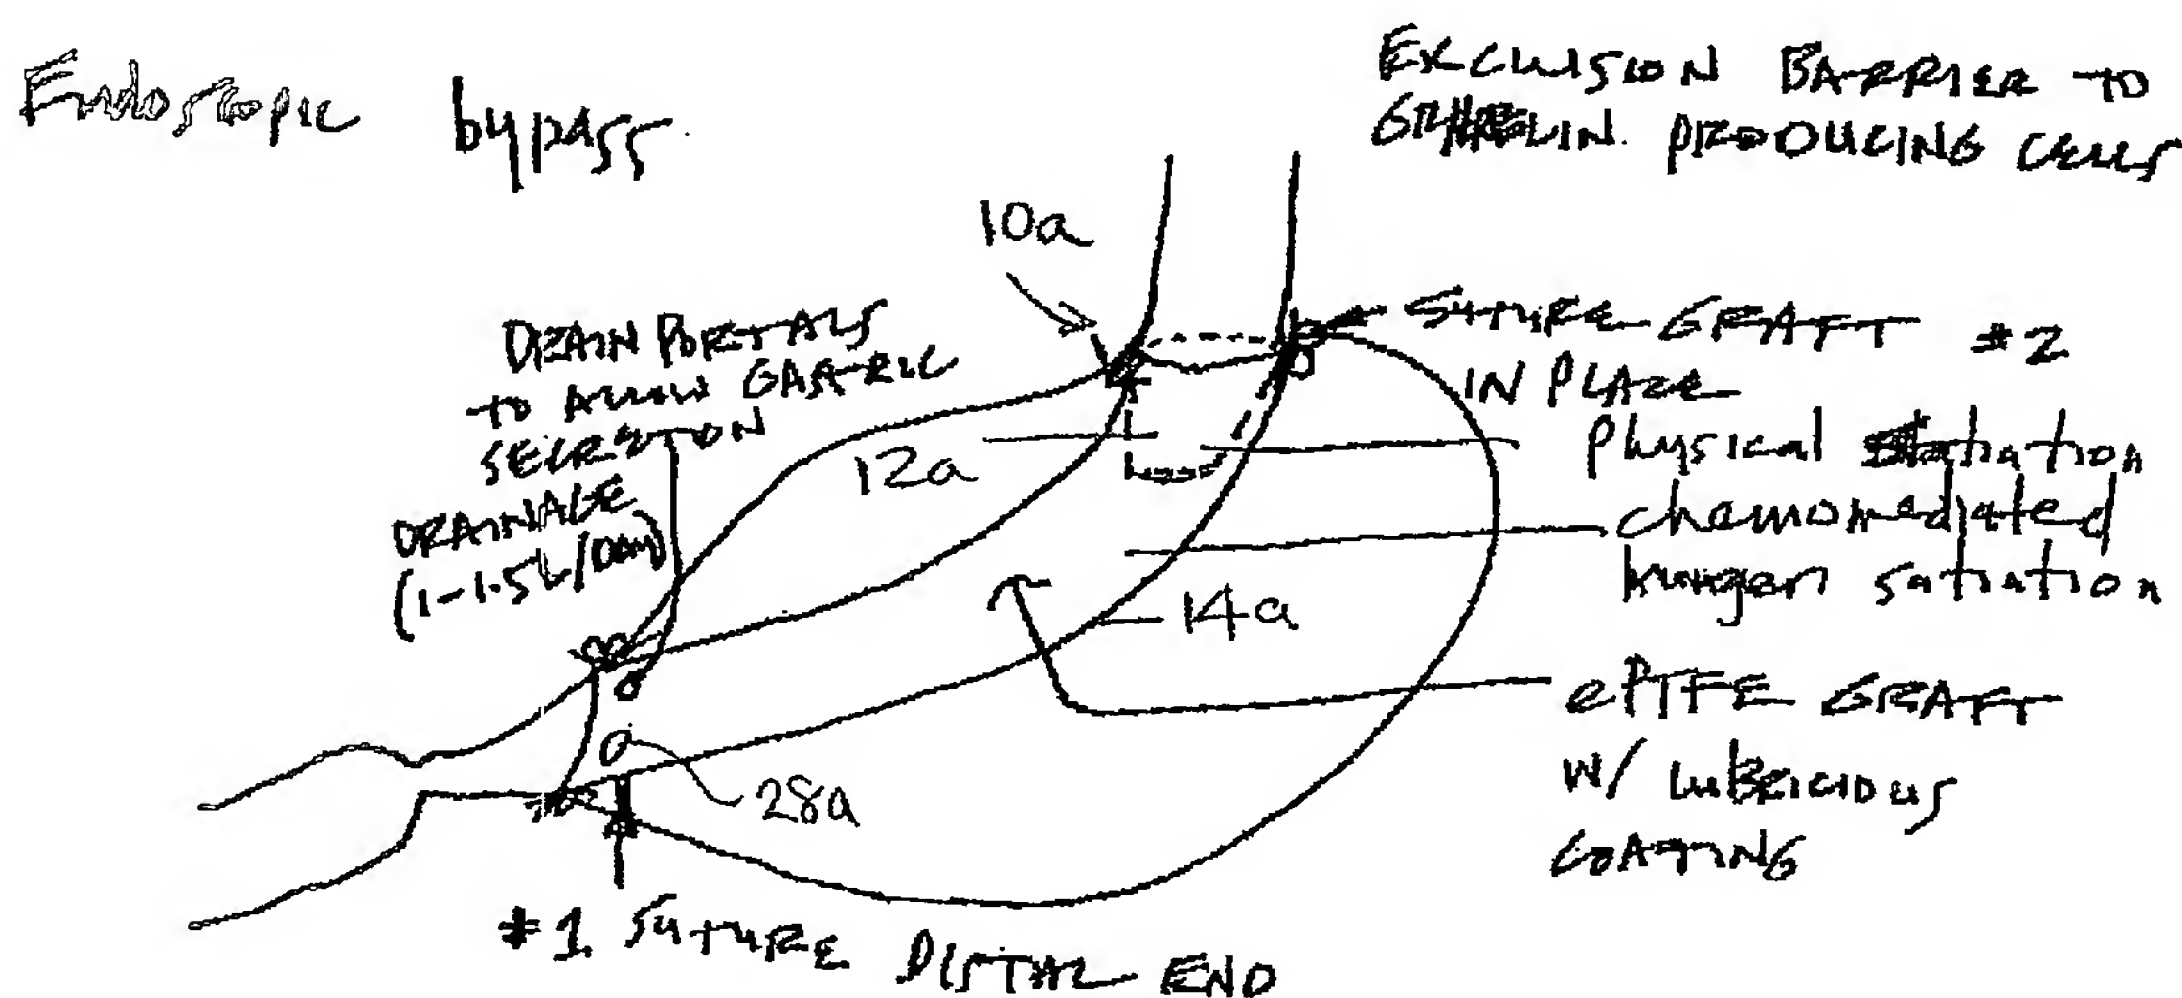 Endoscopic bypass.
EXCLUSION BARRIER TO
GHRELIN. PRODUCING CELLS
10a
DRAIN PORTALS
TO ALLOW GASTRIC
SECRETION
DRAINAGE
(1-1.5L/DAY)
SUTURE GRAFT #2
IN PLACE
12a
Physical satiation
chemomediated
hunger satiation
14a
ePTFE GRAFT
W/ LUBRICIOUS
COATING
28a
#1 SUTURE DISTAL END